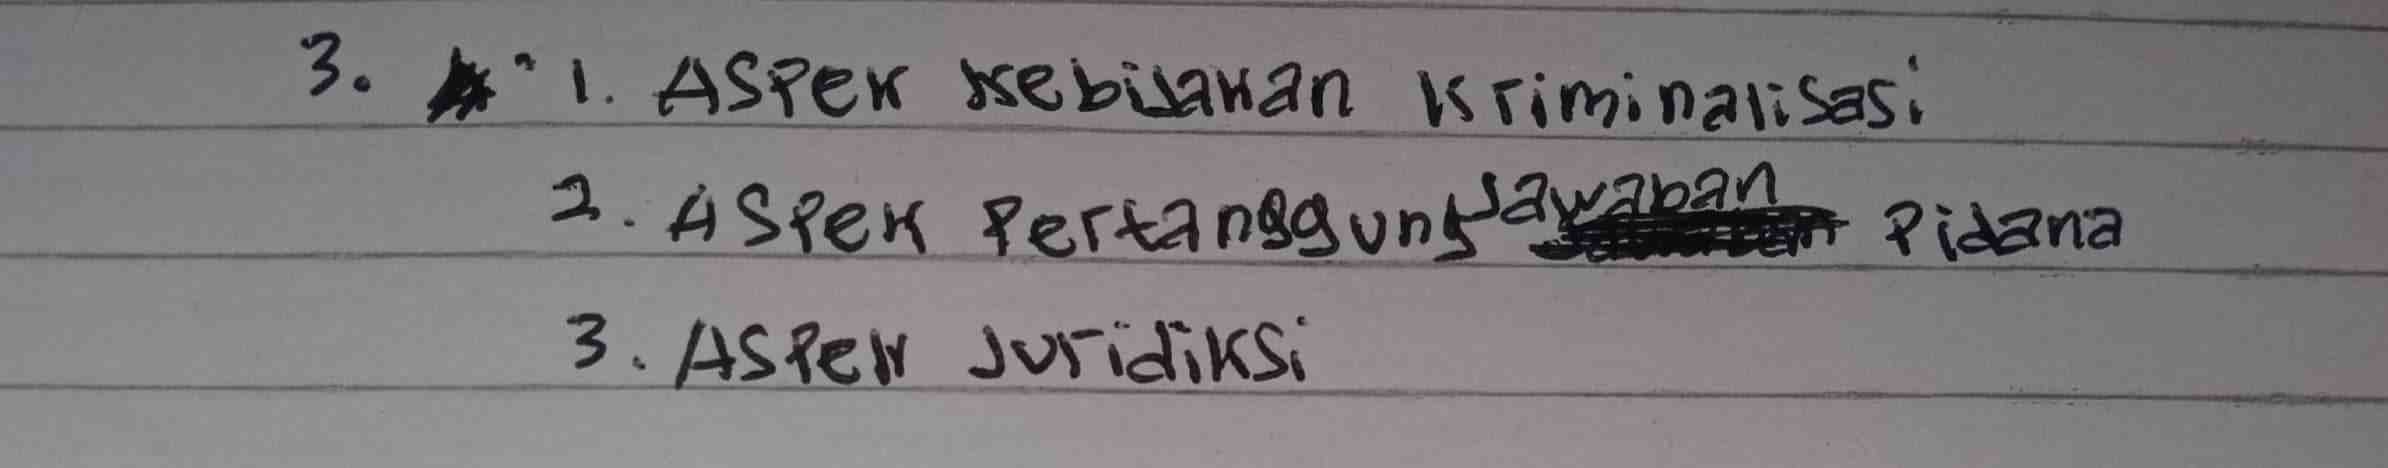 3. 1. Aspek Kebijakan Kriminalisasi
2. Aspek Pertanggungjawaban Pidana
3. Aspek Juridiksi